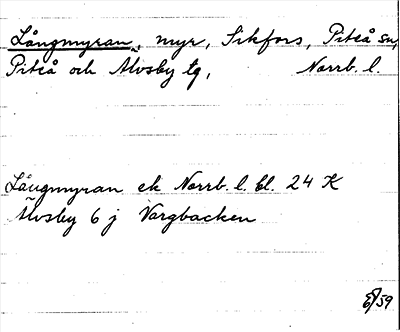 Långmyran, myr, Sikfors, Piteå sn,
Piteå och Älvsby tg, Norrb. l.
Långmyran ek Norrb. l. bl. 24 K
Älvsby 6 j Vargbacken
59